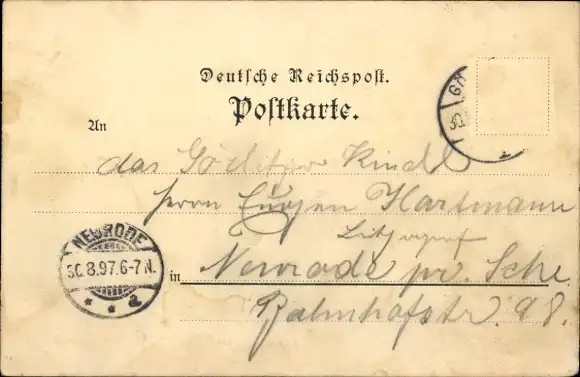 Deutsche Reichspost.
Postkarte.
An
GÖ
30
das Görlitzer Kindl
Herrn Eugen Hartmann
NEURODE
30.8.97.6-7N.
* * a
in Neurode pr. Schl
Bahnhofstr. 98.